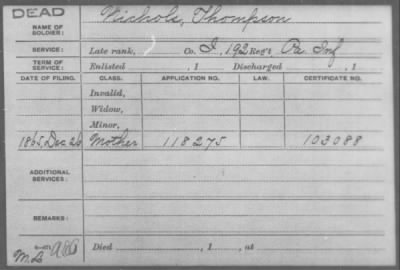 DEAD
NAME OF SOLDIER: Nichols, Thompson
SERVICE: Late rank, Co. I, 192 Reg't Pa. Inf
TERM OF SERVICE: Enlisted , 1 Discharged , 1
DATE OF FILING. CLASS. APPLICATION NO. LAW. CERTIFICATE NO.
Invalid,
Widow,
Minor,
1865, Dec 26 Mother 118275 103088
ADDITIONAL SERVICES:
REMARKS:
Died , 1 , at